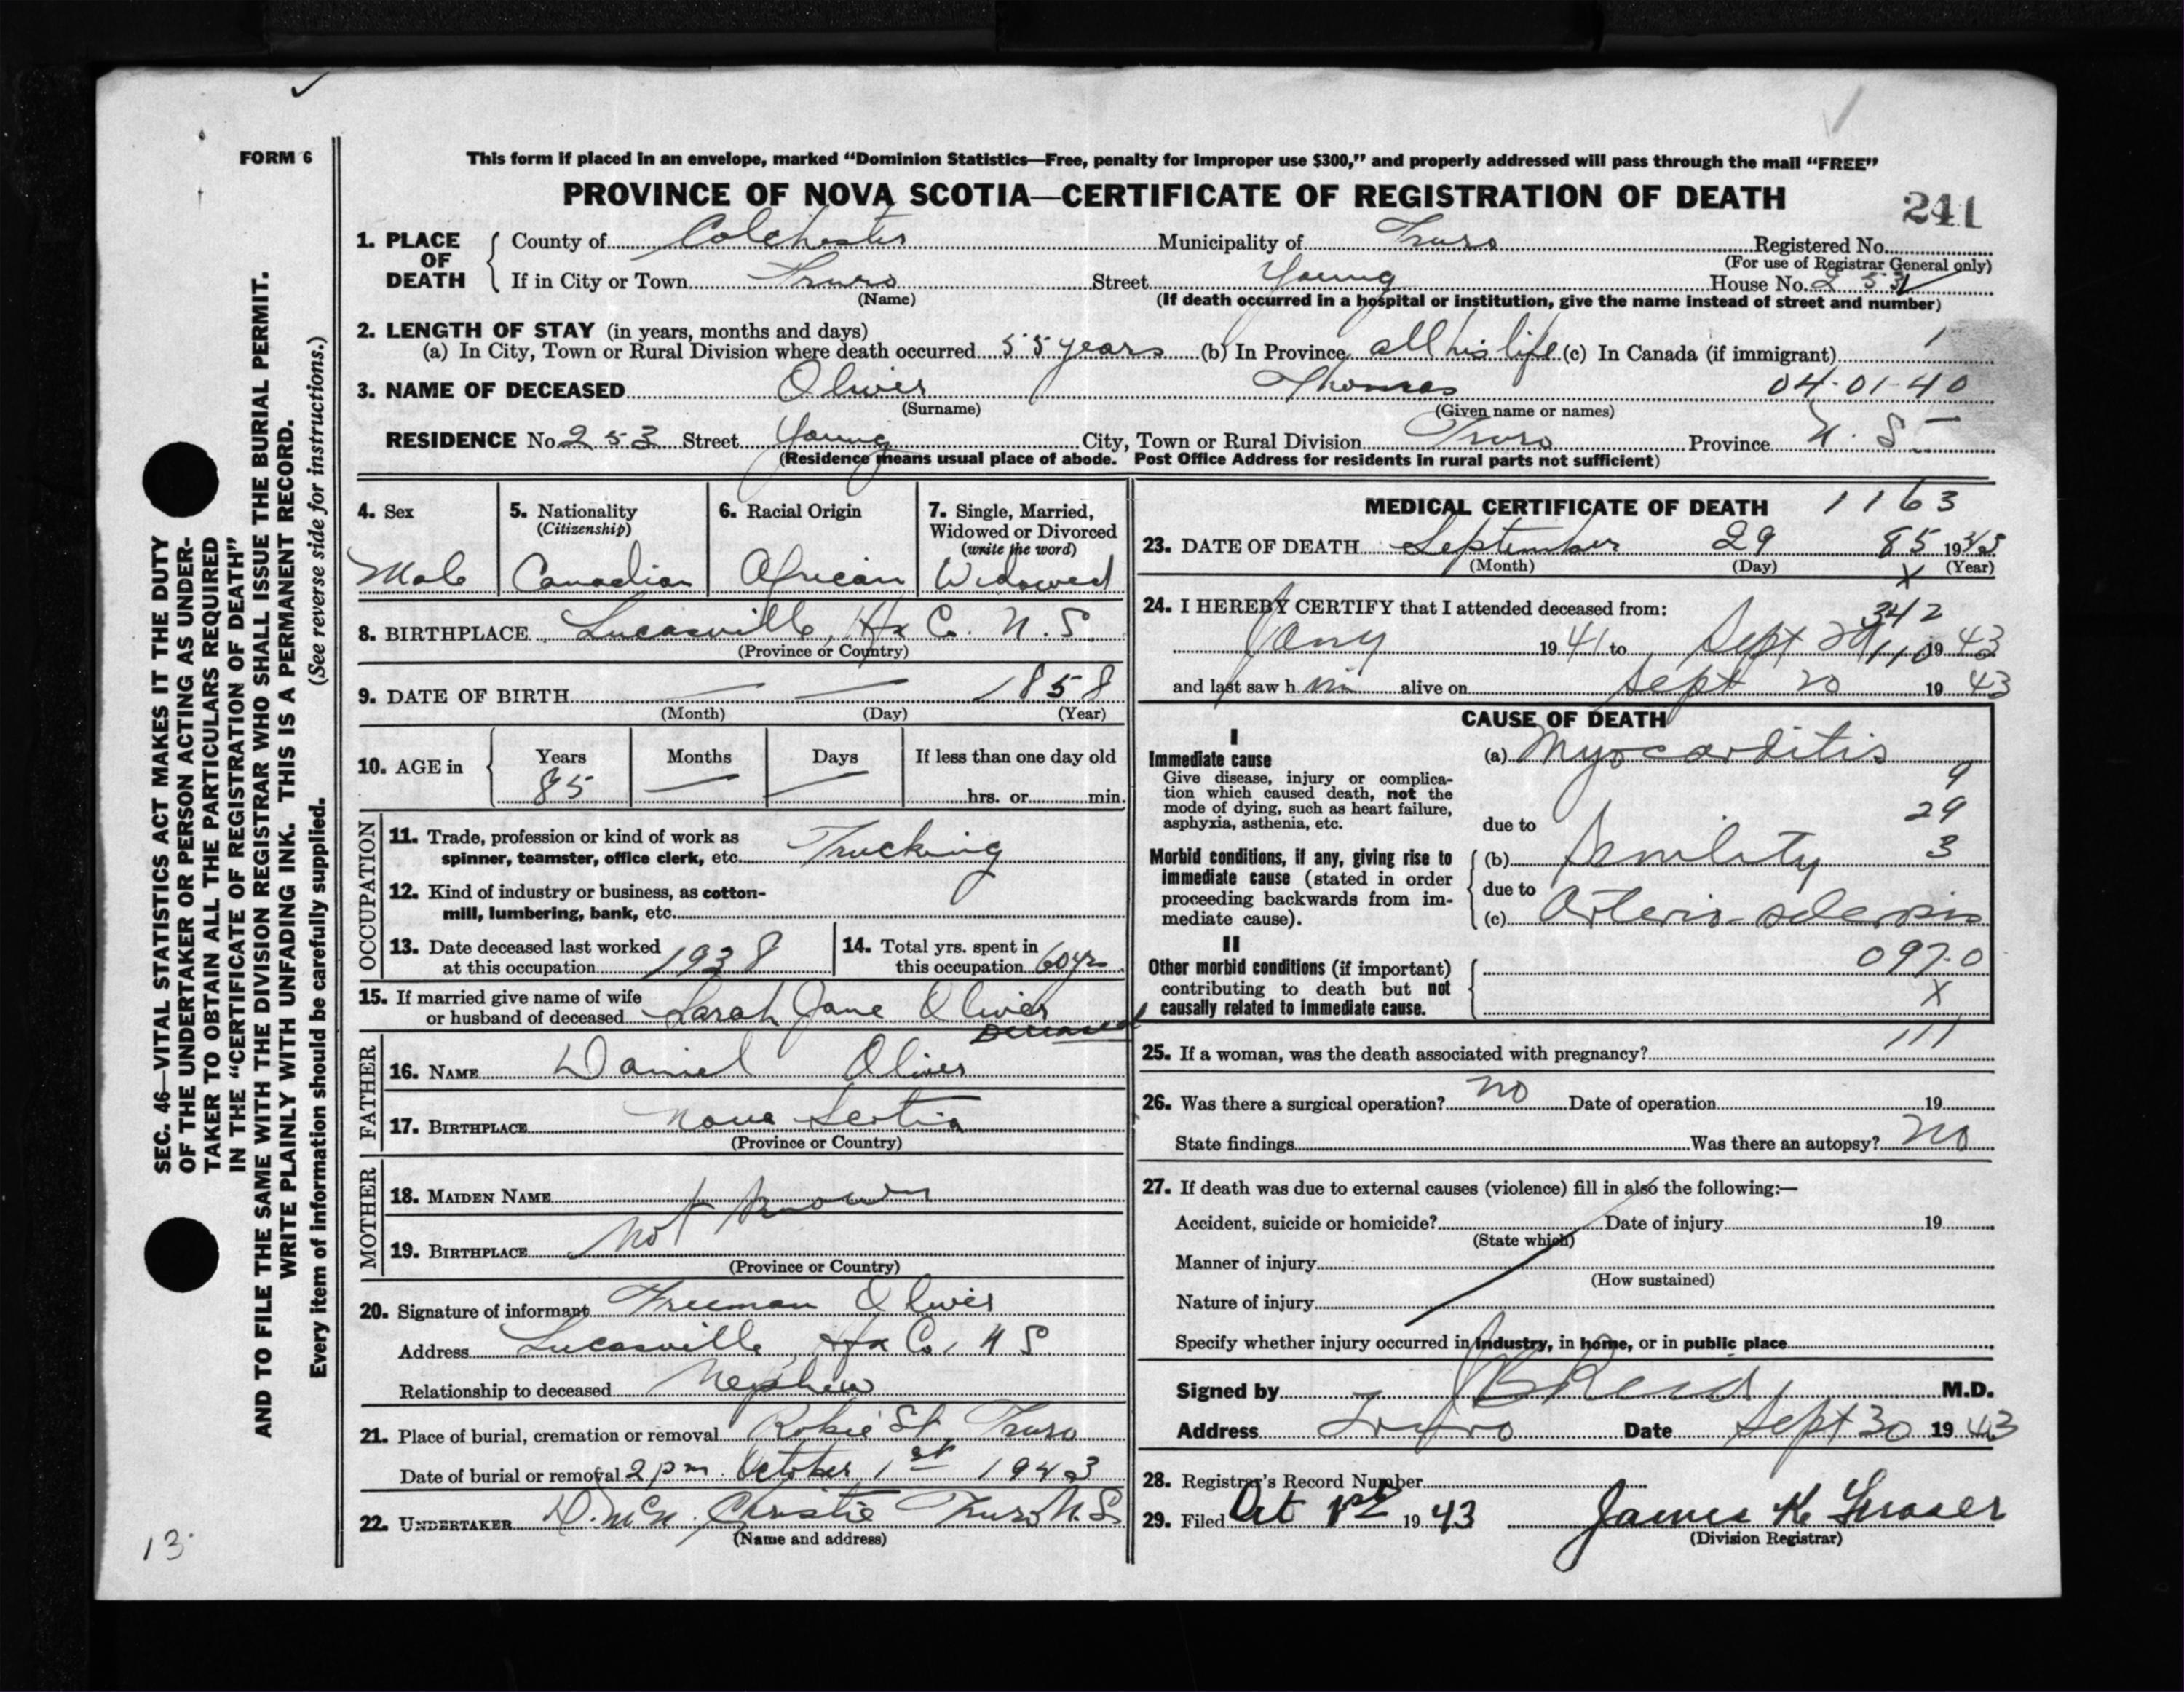 FORM 6
This form if placed in an envelope, marked “Dominion Statistics—Free, penalty for improper use $300,” and properly addressed will pass through the mail “FREE”
PROVINCE OF NOVA SCOTIA—CERTIFICATE OF REGISTRATION OF DEATH
241
1. PLACE OF DEATH { County of Colchester Municipality of Truro Registered No.
(For use of Registrar General only)
If in City or Town Truro Street Young House No. 253
(Name) (If death occurred in a hospital or institution, give the name instead of street and number)
2. LENGTH OF STAY (in years, months and days)
(a) In City, Town or Rural Division where death occurred 55 years (b) In Province all his life (c) In Canada (if immigrant) 1
3. NAME OF DECEASED Oliver Thomas 04-01-40
(Surname) (Given name or names)
RESIDENCE No. 253 Street Young City, Town or Rural Division Truro Province N. S.
(Residence means usual place of abode. Post Office Address for residents in rural parts not sufficient)
4. Sex
Male
5. Nationality
(Citizenship)
Canadian
6. Racial Origin
African
7. Single, Married,
Widowed or Divorced
(write the word)
Widowed
8. BIRTHPLACE Lucasville, Hx Co. N. S.
(Province or Country)
9. DATE OF BIRTH — — 1858
(Month) (Day) (Year)
10. AGE in { Years Months Days If less than one day old
85 — — hrs. or min.
OCCUPATION
11. Trade, profession or kind of work as
spinner, teamster, office clerk, etc. Trucking
12. Kind of industry or business, as cotton-
mill, lumbering, bank, etc.
13. Date deceased last worked
at this occupation 1938
14. Total yrs. spent in
this occupation 60 yrs
15. If married give name of wife
or husband of deceased Sarah Jane Oliver
Deceased
FATHER
16. NAME Daniel Oliver
17. BIRTHPLACE Nova Scotia
(Province or Country)
MOTHER
18. MAIDEN NAME
not known
19. BIRTHPLACE
(Province or Country)
20. Signature of informant Freeman Oliver
Address Lucasville, Hx Co, N S
Relationship to deceased Nephew
21. Place of burial, cremation or removal Robie St, Truro
Date of burial or removal 2 pm. October 1st 1943
22. UNDERTAKER D. McN. Christie Truro N. S.
(Name and address)
MEDICAL CERTIFICATE OF DEATH 1163
23. DATE OF DEATH September 29 85 1943
(Month) (Day) X (Year)
24. I HEREBY CERTIFY that I attended deceased from: 342
Jany 1941 to Sept 1943
110
and last saw him alive on Sept 20 1943
CAUSE OF DEATH
I
Immediate cause
Give disease, injury or complica-
tion which caused death, not the
mode of dying, such as heart failure,
asphyxia, asthenia, etc.
(a) Myocarditis
9
29
due to
Morbid conditions, if any, giving rise to
immediate cause (stated in order
proceeding backwards from im-
mediate cause).
(b) Senility 3
due to
(c) Arterio-sclerosis
II
Other morbid conditions (if important)
contributing to death but not
causally related to immediate cause.
097.0
X
111
25. If a woman, was the death associated with pregnancy?
26. Was there a surgical operation? no Date of operation 19
State findings Was there an autopsy? no
27. If death was due to external causes (violence) fill in also the following:—
Accident, suicide or homicide? Date of injury 19
(State which)
Manner of injury
(How sustained)
Nature of injury
Specify whether injury occurred in industry, in home, or in public place
Signed by J B Reid, M.D.
Address Truro Date Sept 30 1943
28. Registrar's Record Number
29. Filed Oct 1st 1943 James K Fraser
(Division Registrar)
SEC. 46—VITAL STATISTICS ACT MAKES IT THE DUTY
OF THE UNDERTAKER OR PERSON ACTING AS UNDER-
TAKER TO OBTAIN ALL THE PARTICULARS REQUIRED
IN THE “CERTIFICATE OF REGISTRATION OF DEATH”
AND TO FILE THE SAME WITH THE DIVISION REGISTRAR WHO SHALL ISSUE THE BURIAL PERMIT.
WRITE PLAINLY WITH UNFADING INK. THIS IS A PERMANENT RECORD.
Every item of information should be carefully supplied. (See reverse side for instructions.)
13